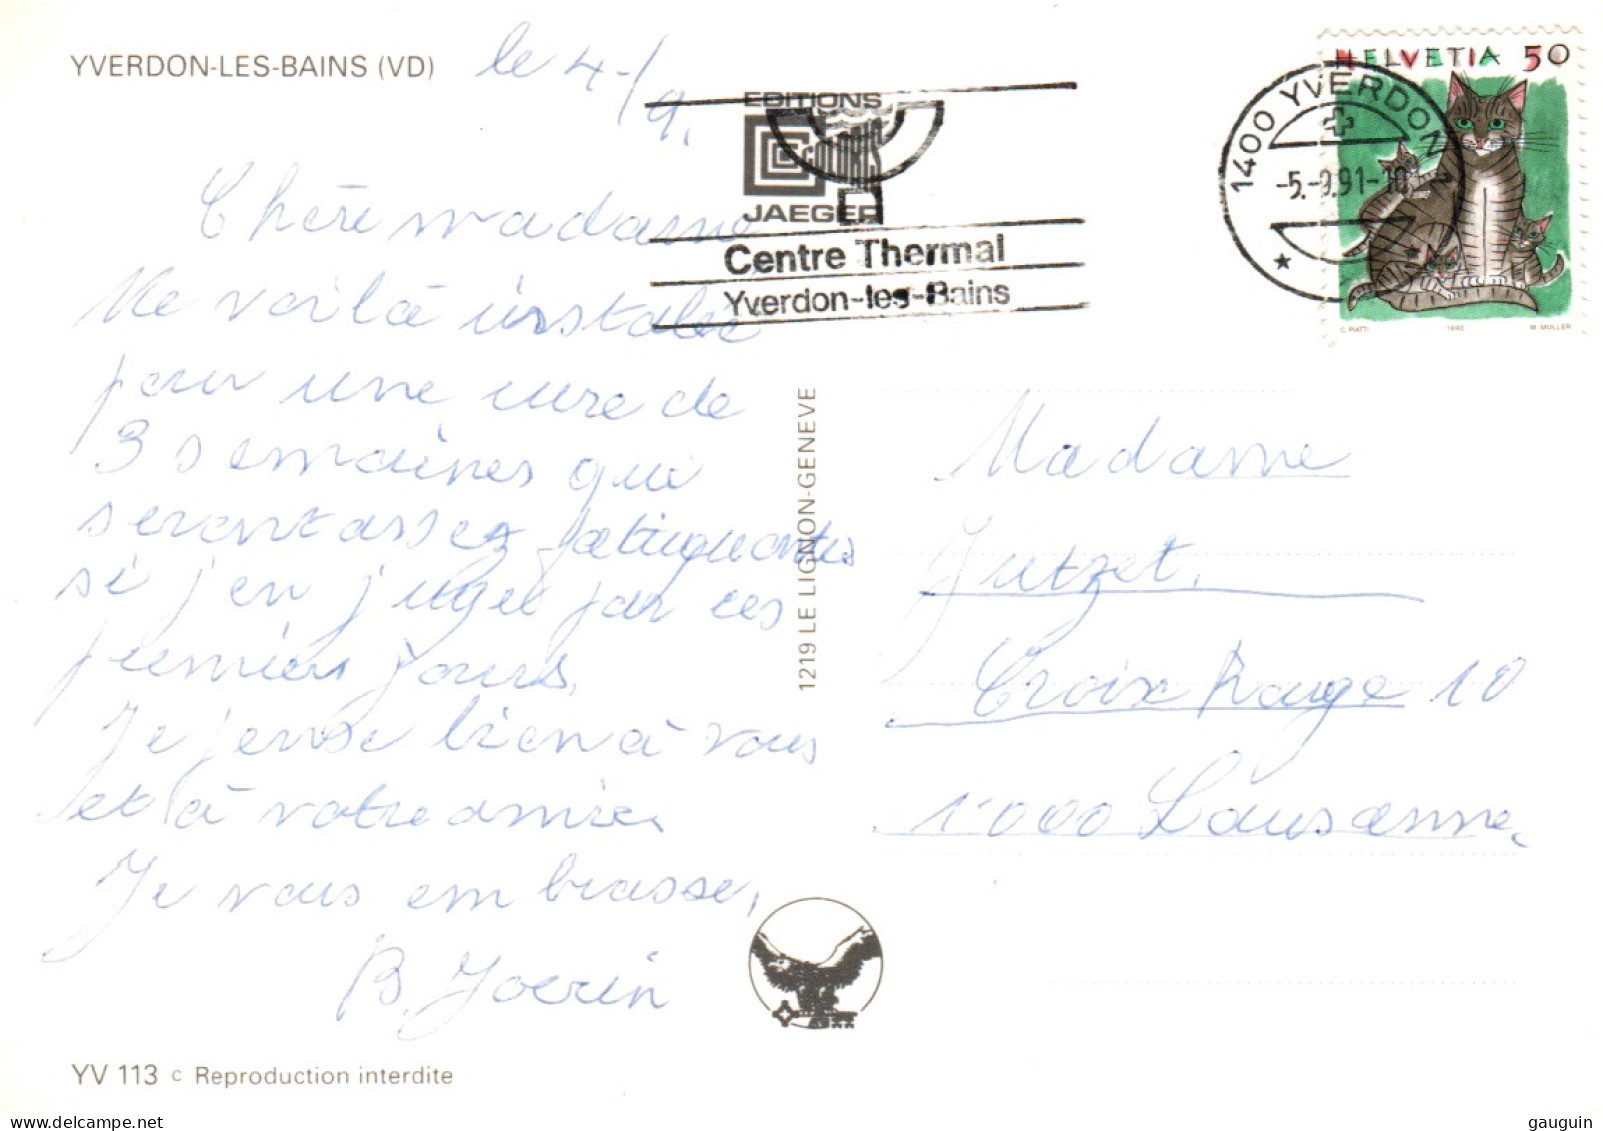 YVERDON-LES-BAINS (VD)
le 4-/9.
Chère madame
Me voilà installée
pour une cure de
3 semaines qui
seront assez fatiguantes
si j'en juge par ces
premiers jours.
Je pense bien à vous
et à votre amie.
Je vous embrasse,
B. Joerin
YV 113 c Reproduction interdite
EDITIONS
JAEGER
Centre Thermal
Yverdon-les-Bains
1219 LE LIGNON-GENEVE
1400 YVERDON
-5.-9.91-10
HELVETIA 50
C. PIATTI 1990 M. MÜLLER
Madame
Jutzet.
Croix Rouge 10
1000 Lausanne.
gauguin